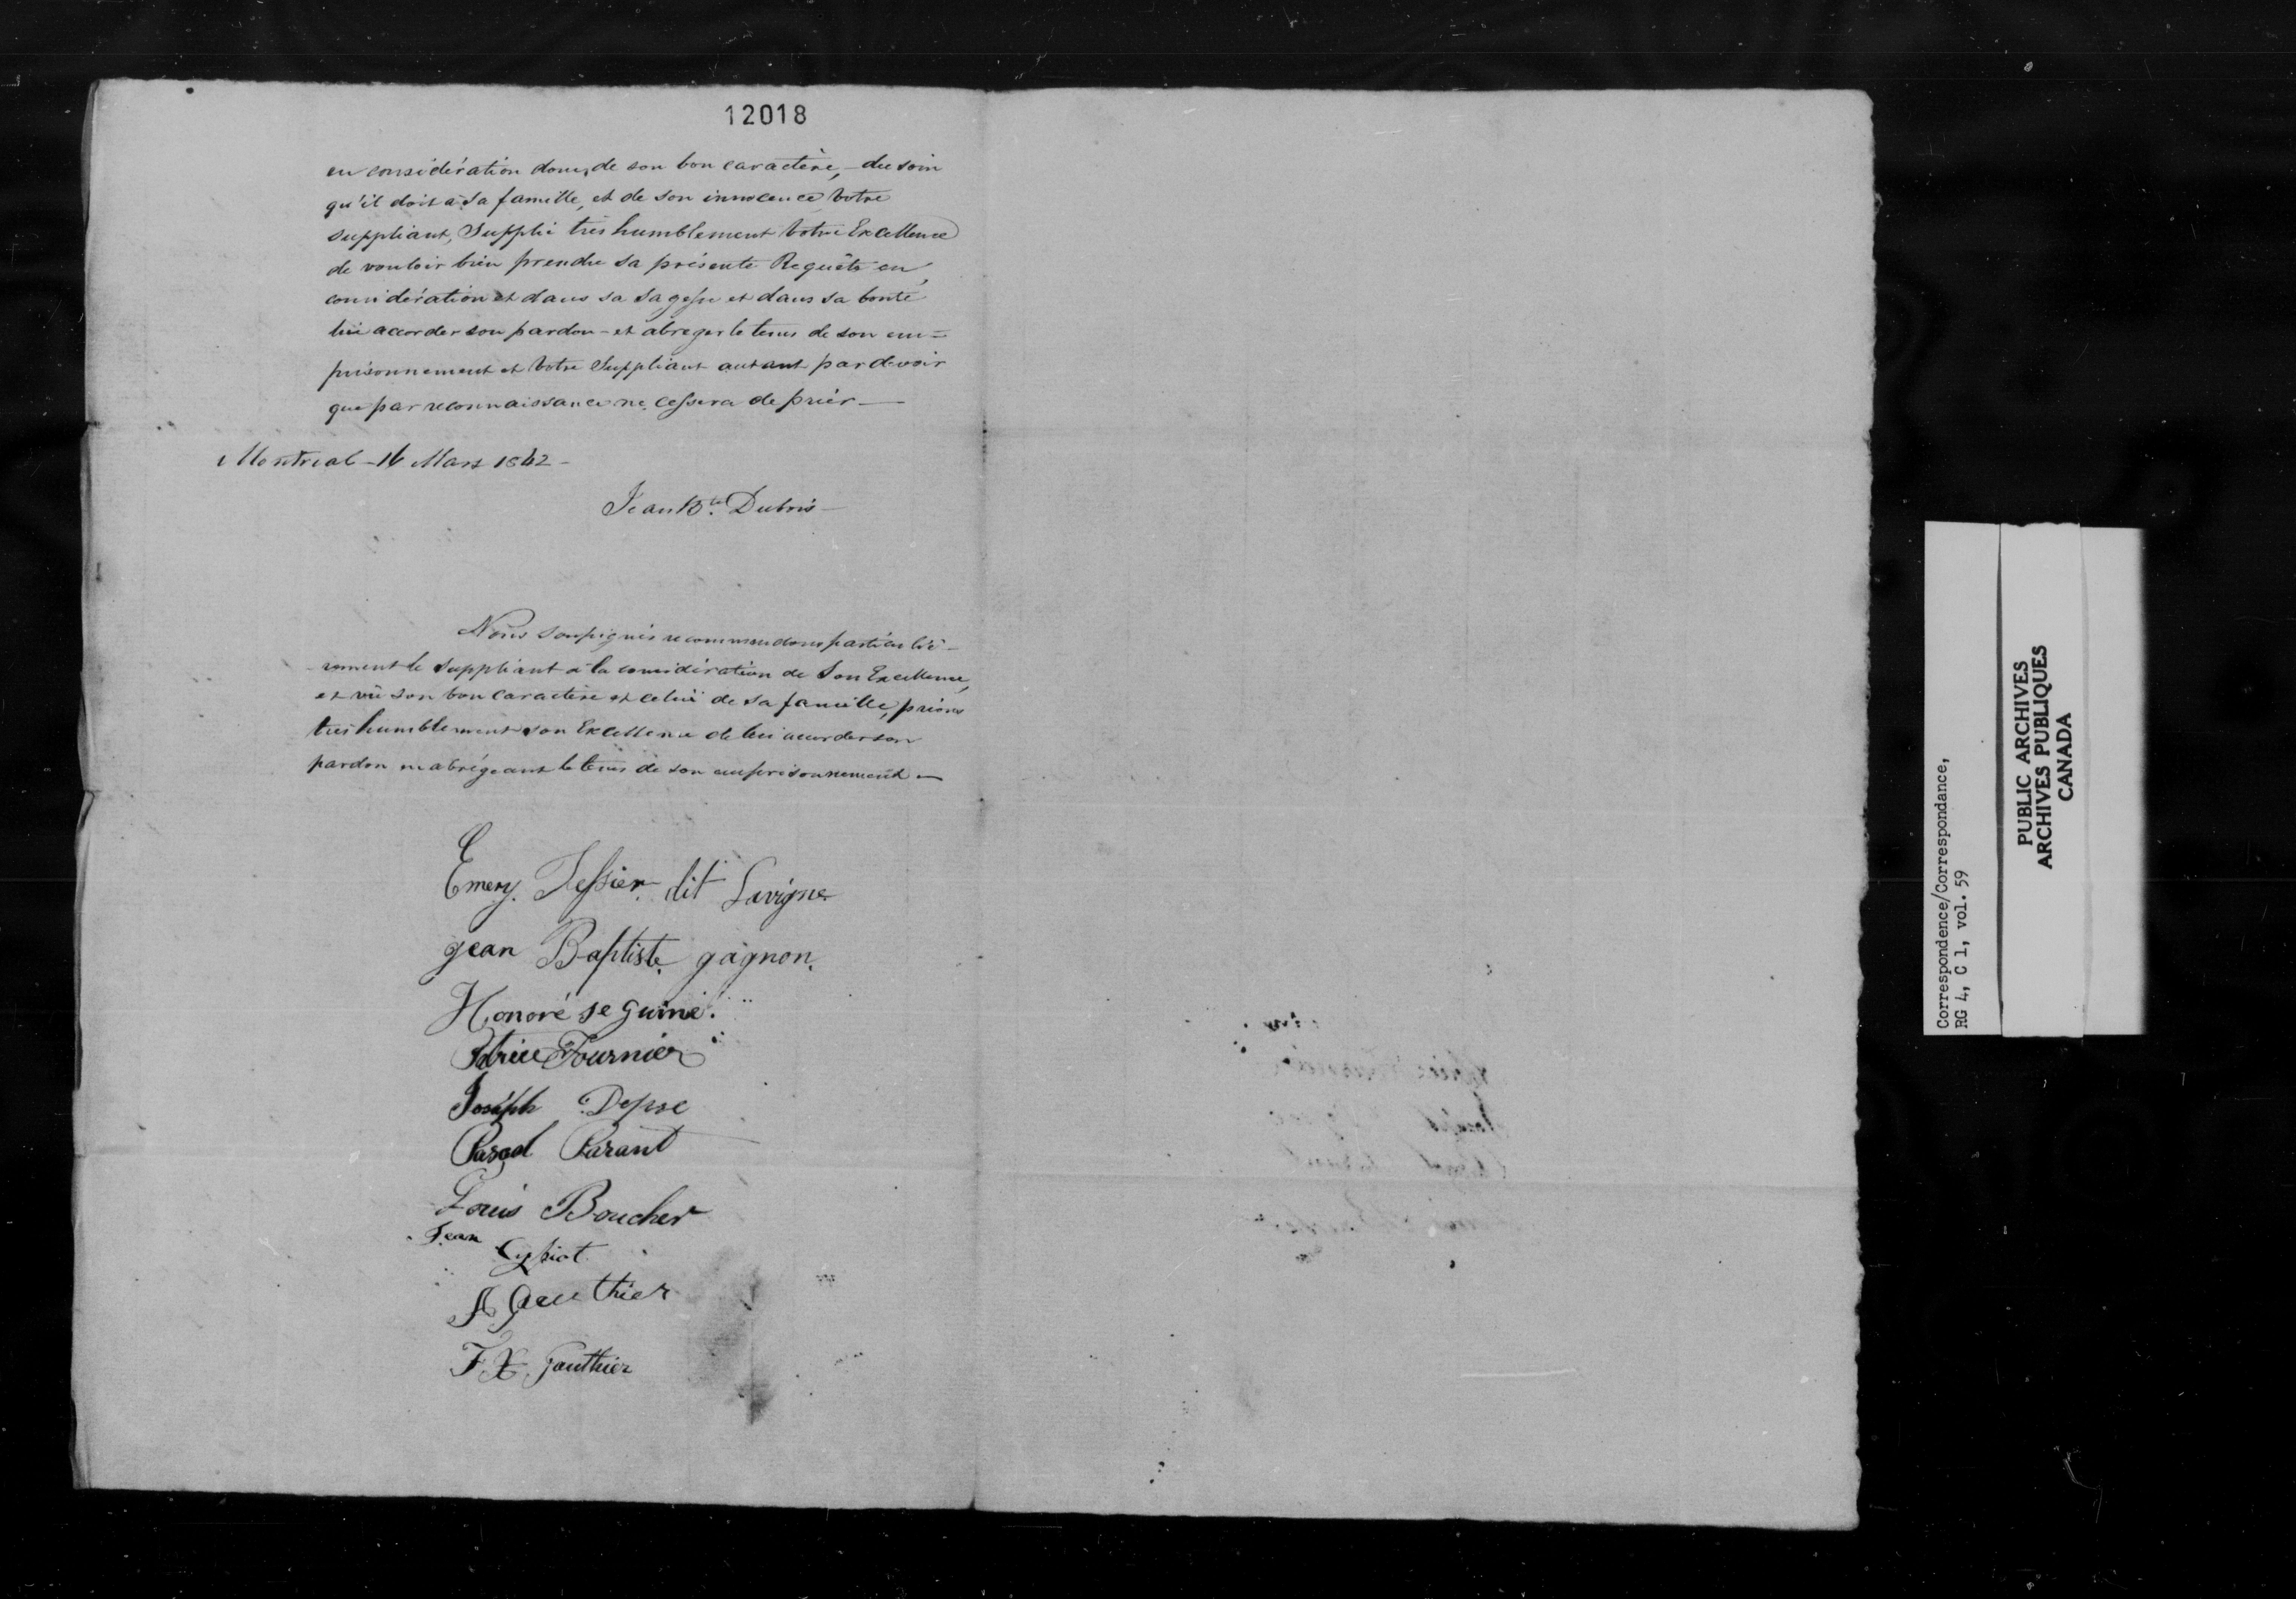 12018
en considération donc, de son bon caractère, - du soin
qu'il doit à sa famille, et de son innocence Votre
suppliant, Supplie très humblement Votre Excellence
de vouloir bien prendre sa présente Requête en
considération et dans sa sagesse et dans sa bonté
lui accorder son pardon - et abreger le tems de son em=
prisonnement et Votre Suppliant autant par devoir
que par reconnaissance ne cessera de prier —
Montreal - 16 Mars 1842 -
Jean Bte. Dubois -
Nous soussignés recommandons particuliè-
-rement le Suppliant à la considération de Son Excellence,
et vû son bon caractère et celui de sa famille, prions
très humblement son Excellence de lui accorder son
pardon en abrégeant le tems de son emprisonnement —
Emery Tessier dit Lavigne
Jean Baptiste gagnon.
Honoré se guine.
Patrice Fournier
Joseph
Pascal Parant
Louis Boucher
Jean
A Gauthier
F X Gauthier
Correspondence/Correspondance,
RG 4, C 1, vol. 59
PUBLIC ARCHIVES
ARCHIVES PUBLIQUES
CANADA